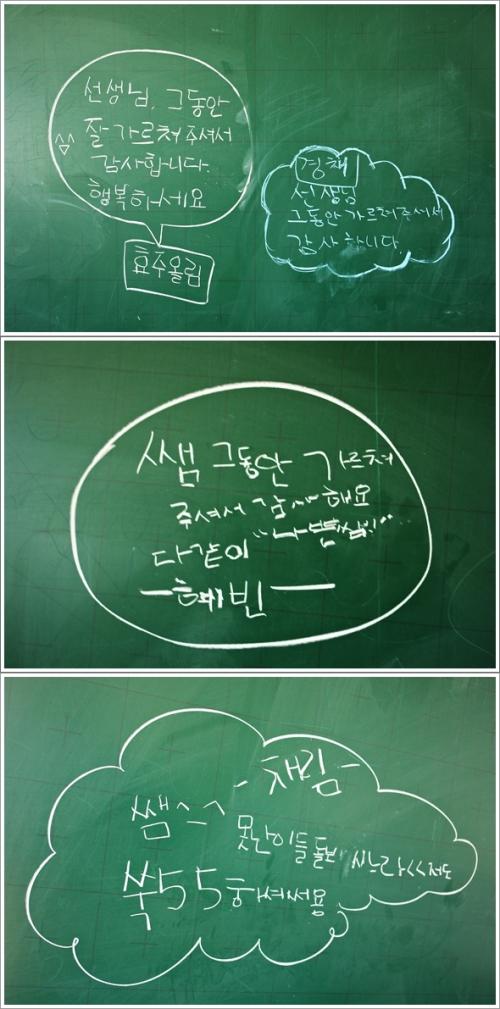 선생님, 그동안
잘 가르쳐 주셔서
감사합니다.
행복하세요
^^
효주올림
경채
선생님
그동안 가르쳐주셔서
감사합니다
쌤 그동안 가르쳐
주셔서 감사해요
다같이
-혜빈-
-채림-
쌤^-^
못난이들 돌보시느라
쑥55